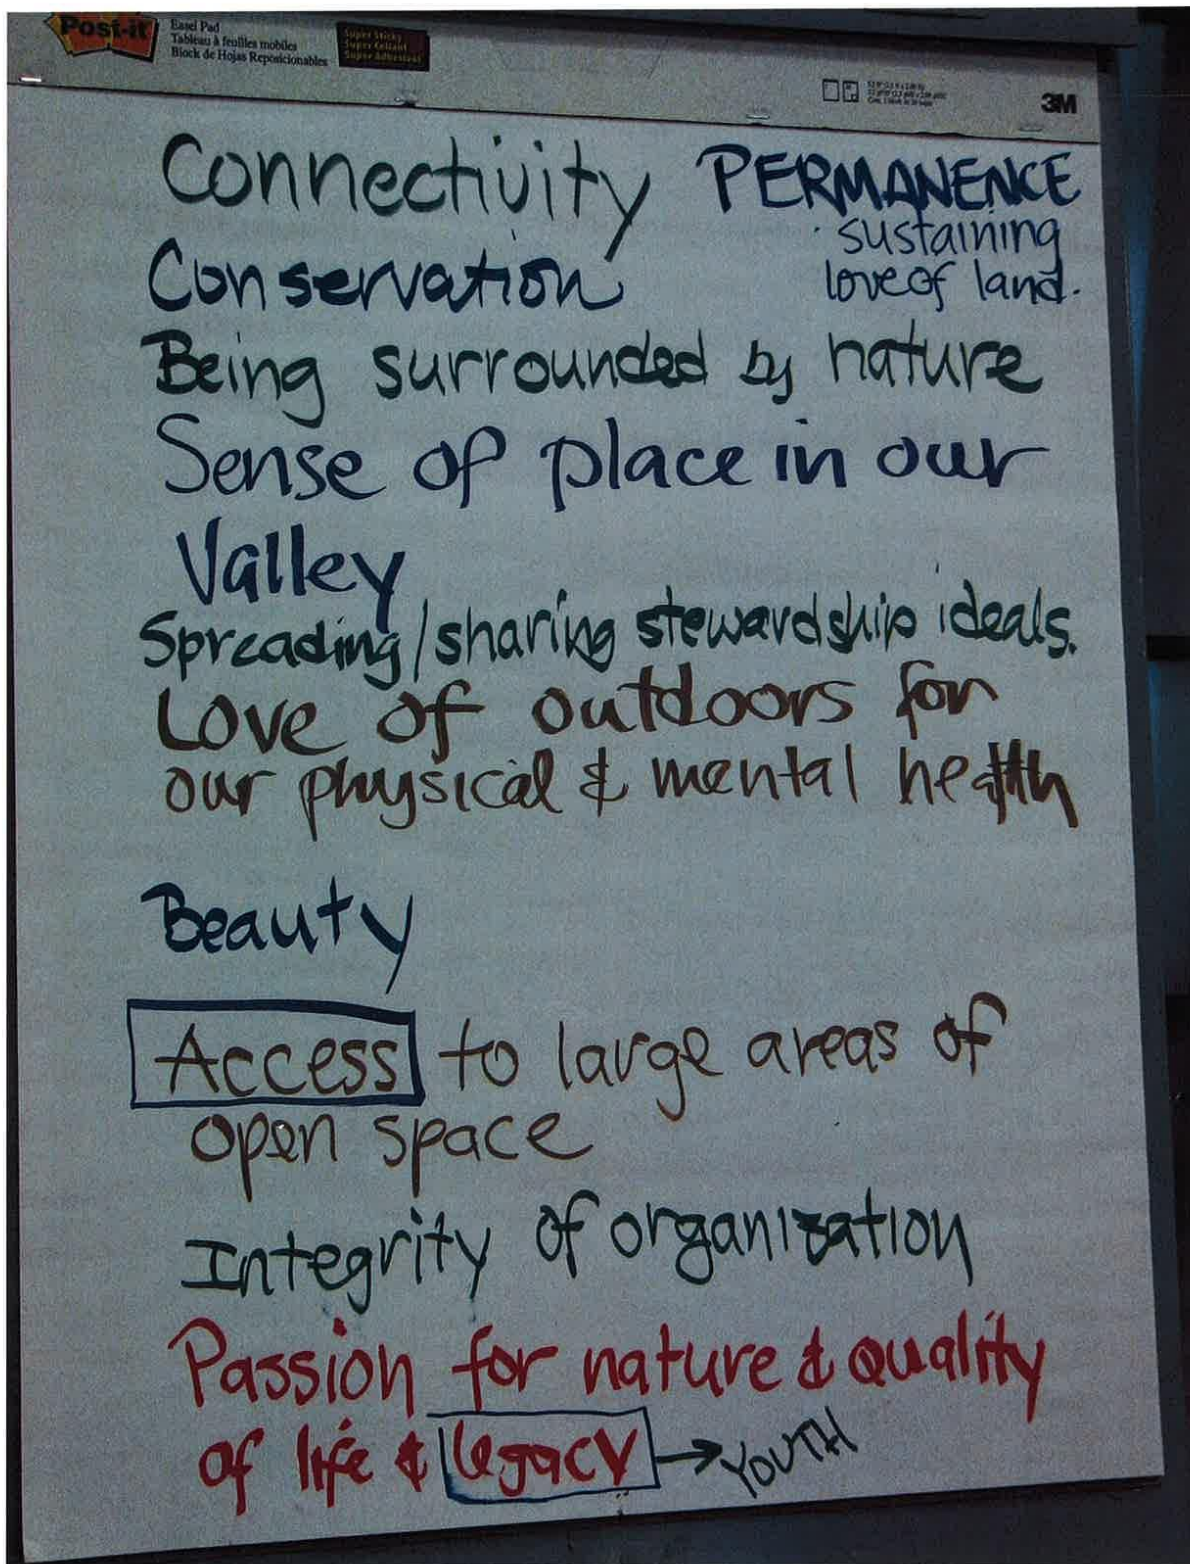 Post-it
Easel Pad
Tableau à feuilles mobiles
Block de Hojas Reposicionables
Super Sticky
Super Collant
Super Adhesivas
3M
Connectivity PERMANENCE
· sustaining
love of land.
Conservation
Being surrounded by nature
Sense of place in our
Valley
Spreading/sharing stewardship ideals.
Love of outdoors for
our physical & mental health
Beauty
Access to large areas of
open space
Integrity of organization
Passion for nature & quality
of life & legacy → YOUTH